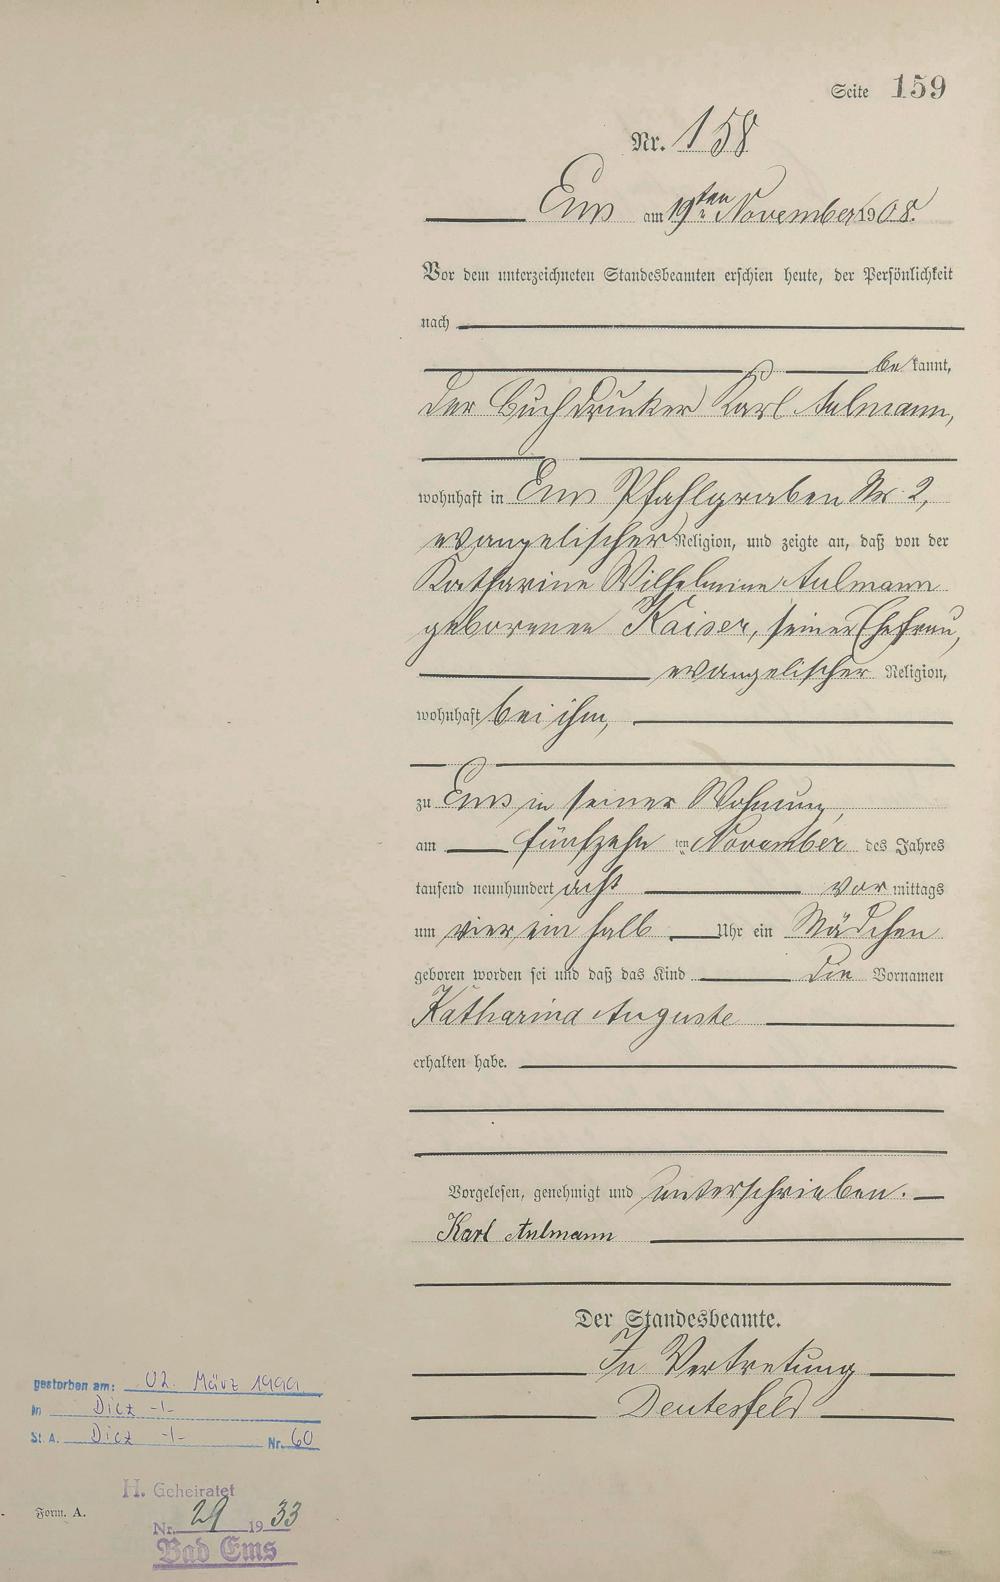 Seite 159
Nr. 158
Ems am 19ten November 1908.
Vor dem unterzeichneten Standesbeamten erschien heute, der Persönlichkeit
nach
be kannt,
der Buchdrucker Karl Aulmann,
wohnhaft in Ems Pfahlgraben Nr. 2,
evangelischer Religion, und zeigte an, daß von der
Katharine Wilhelmine Aulmann
geborenen Kaiser, seiner Ehefrau,
evangelischer Religion,
wohnhaft bei ihm,
zu Ems in seiner Wohnung,
am fünfzehn ten November des Jahres
tausend neunhundert acht vor mittags
um vier ein halb Uhr ein Mädchen
geboren worden sei und daß das Kind die Vornamen
Katharina Auguste
erhalten habe.
Vorgelesen, genehmigt und unterschrieben.
Karl Aulmann
Der Standesbeamte.
In Vertretung
gestorben am: 02. März 1999
in Diez -1-
St. A. Diez -1- Nr. 60
H. Geheiratet
Nr. 29 1933
Bad Ems
Form. A.